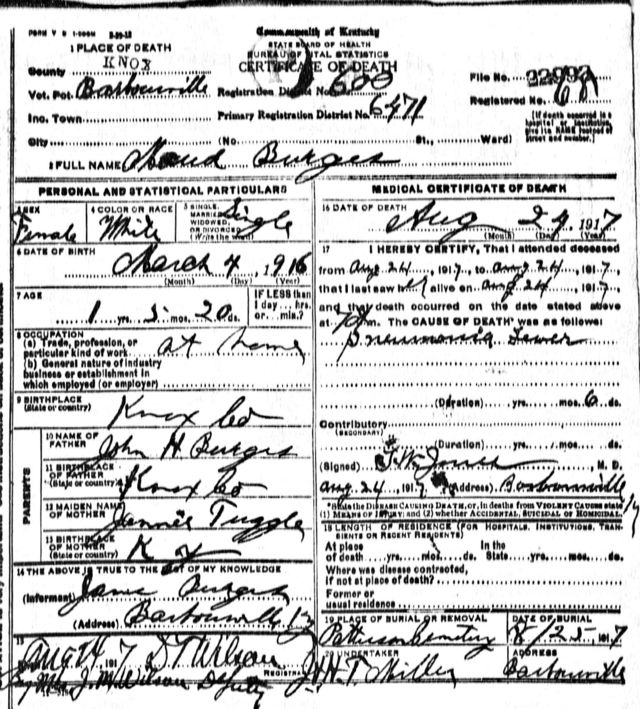 FORM V S 1-
Commonwealth of Kentucky
STATE BOARD OF HEALTH
BUREAU OF VITAL STATISTICS
CERTIFICATE OF DEATH
1 PLACE OF DEATH
County KNOX
Vot. Pct. Barbourville
Registration District No. 600
File No. 22993
Inc. Town
Primary Registration District No. 6471
Registered No.
City (No. St., Ward)
[If death occurred in a hospital or institution, give its NAME instead of street and number.]
2 FULL NAME Maud Burges
PERSONAL AND STATISTICAL PARTICULARS
3 SEX Female
4 COLOR OR RACE White
5 SINGLE, MARRIED, WIDOWED, OR DIVORCED (Write the word) Single
6 DATE OF BIRTH
March 4, 1916
(Month) (Day) (Year)
7 AGE
1 yrs. 5 mos. 20 ds.
IF LESS than 1 day ... hrs. or ... min.?
8 OCCUPATION
(a) Trade, profession, or particular kind of work at home
(b) General nature of industry business or establishment in which employed (or employer)
9 BIRTHPLACE (State or country) Knox Co
PARENTS
10 NAME OF FATHER John H Burges
11 BIRTHPLACE OF FATHER (State or country) Knox Co
12 MAIDEN NAME OF MOTHER Tuggle
13 BIRTHPLACE OF MOTHER (State or country) Ky
14 THE ABOVE IS TRUE TO THE BEST OF MY KNOWLEDGE
(Informant) Burges
(Address) Barbourville Ky
15 Aug 24, 1917 D T Wilson
REGISTRAR
By Mrs J. M. Wilson Deputy
MEDICAL CERTIFICATE OF DEATH
16 DATE OF DEATH
Aug 24 1917
(Month) (Day) (Year)
17 I HEREBY CERTIFY, That I attended deceased
from Aug 24, 1917, to Aug 24, 1917,
that I last saw h alive on Aug 24, 1917,
and that death occurred on the date stated above
at m. The CAUSE OF DEATH* was as follows:
Pneumonia Fever
(Duration) yrs. mos. 6 ds.
Contributory
(SECONDARY)
(Duration) yrs. mos. ds.
(Signed) Jones M. D.
Aug 24, 1917 (Address) Barbourville Ky
*State the DISEASE CAUSING DEATH, or, in deaths from VIOLENT CAUSES state (1) MEANS OF INJURY; and (2) whether ACCIDENTAL, SUICIDAL or HOMICIDAL
18 LENGTH OF RESIDENCE (FOR HOSPITALS, INSTITUTIONS, TRANSIENTS OR RECENT RESIDENTS)
At place of death yrs. mos. ds. In the State yrs. mos. ds.
Where was disease contracted, if not at place of death?
Former or usual residence
19 PLACE OF BURIAL OR REMOVAL Patterson Cemetery
DATE OF BURIAL 8/25, 1917
20 UNDERTAKER H. T. Miller
ADDRESS Barbourville